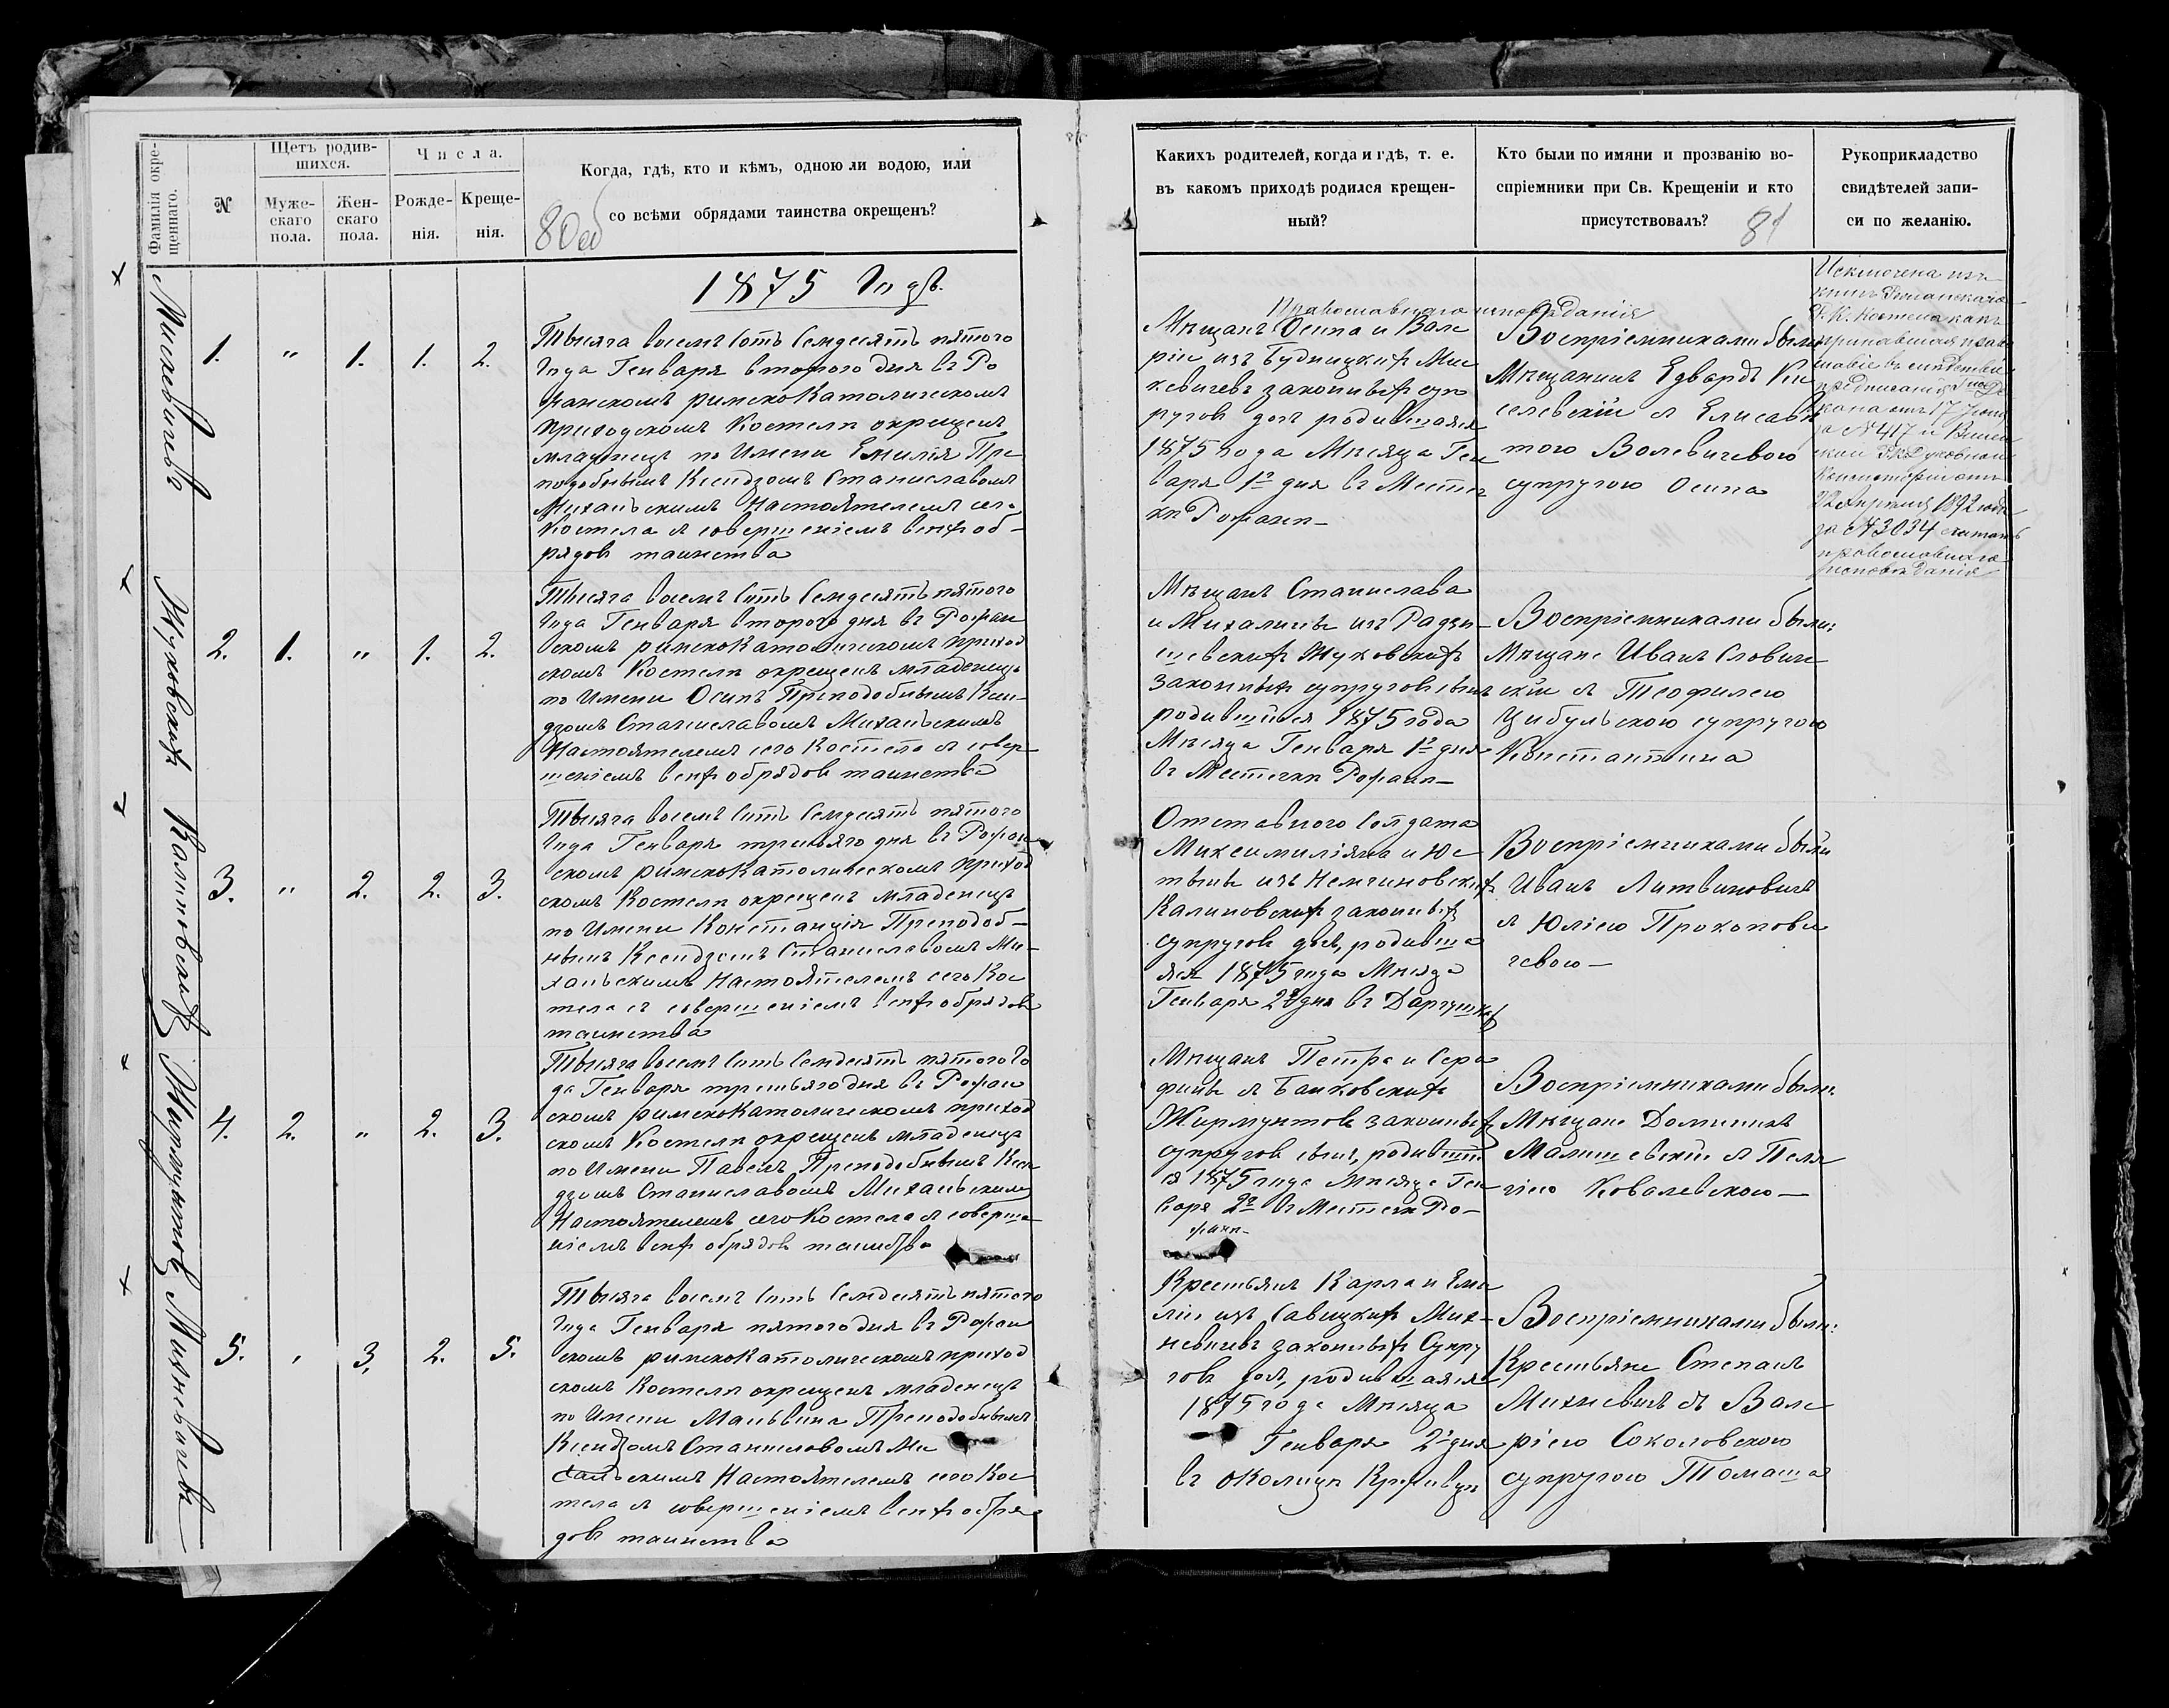 Фамилія окре-
щеннаго.
№
Щетъ родив-
шихся.
Муже-
скаго
пола.
Жен-
скаго
пола.
Числа.
Рожде-
нія.
Креще-
нія.
Когда, гдѣ, кто и кѣмъ, одною ли водою, или
со всѣми обрядами таинства окрещенъ?
80 об
1875 Годъ.
Мискевичевъ
1. " 1. 1. 2.
Тысяча восемь сотъ семдесятъ пятого
года Генваря второго дня въ Ро
жанскомъ римскокатолическомъ
приходскомъ Костелѣ окрещенъ
младенецъ по Имени Емилія Пре
подобнымъ Ксендзомъ Станиславомъ
Михальскимъ Настоятелемъ сего
Костела съ совершеніемъ всѣхъ об-
рядовъ таинства
Жуковскихъ
2. 1. " 1. 2.
Тысяча восемь сотъ семдесятъ пятого
года Генваря второго дня въ Рожан
скомъ римскокатолическомъ приход
скомъ Костелѣ окрещенъ младенецъ
по Имени Осипъ Преподобнымъ Ксен-
дзомъ Станиславомъ Михальскимъ
Настоятелемъ сего Костела съ совер-
шеніемъ всѣхъ обрядовъ таинства
Калиновскихъ
3. " 2. 2. 3.
Тысяча восемь сотъ семдесятъ пятого
года Генваря третьяго дня въ Рожан
скомъ римскокатолическомъ приход
скомъ Костелѣ окрещенъ младенецъ
по Имени Констанція Преподоб-
нымъ Ксендзомъ Станиславомъ Ми-
хальскимъ Настоятелемъ сего Кос
тела съ совершеніемъ всѣхъ обрядовъ
таинства
Жирмунтовъ
4. 2. " 2. 3.
Тысяча восемь сотъ семдесятъ пятого го
да Генваря третьяго дня въ Рожан
скомъ римскокатолическомъ приход
скомъ Костелѣ окрещенъ младенецъ
по Имени Павелъ Преподобнымъ Ксен
дзомъ Станиславомъ Михальскимъ
Настоятелемъ сего Костела съ соверше
ніемъ всѣхъ обрядовъ таинства
Михневичевъ
5. " 3. 2. 5.
Тысяча восемь сотъ семдесятъ пятого
года Генваря пятого дня въ Рожан
скомъ римскокатолическомъ приход
скомъ Костелѣ окрещенъ младенецъ
по Имени Мальвина Преподобнымъ
Ксендзомъ Станиславомъ Ми
хальскимъ Настоятелемъ сего Кос
тела съ совершеніемъ всѣхъ обря
довъ таинства
Какихъ родителей, когда и гдѣ, т. е.
въ какомъ приходѣ родился крещен-
ный?
Кто были по имяни и прозванію во-
спріемники при Св. Крещеніи и кто
присутствовалъ?
81
Рукоприкладство
свидѣтелей запи-
си по желанію.
Православнаго исповѣданія
Мѣщанъ Осипа и Вале
ріи изъ Будницкихъ Мис
кевичевъ законныхъ суп
руговъ дочь родившаяся
1875 года Мѣсяца Ген
варя 1го дня въ Местеч
кѣ Рожанѣ
Воспріемниками были
Мѣщанинъ Едвардъ Ки
селевскій съ Елисаве
тою Волевичевою
супругою Осипа
Исключена изъ
книгъ Рожанскаго
Р. К. Костела какъ
принявшая право
славіе въ слѣдствіи
предписанія Де
кана отъ 17
за № 417 и Вилен
ской Р. К. Духовной
Консисторіи отъ
22 Апрѣля 1892 года
за № 3034 считать
православнаго
исповѣданія
Мѣщанъ Станислава
и Михалины изъ Радзи-
шевскихъ Жуковскихъ
законныхъ супруговъ сынъ
родившійся 1875 года
Мѣсяца Генваря 1го дня
въ Местечкѣ Рожанѣ
Воспріемниками были:
Мѣщане Иванъ Словин
скій съ Теофилею
Цибульскою супругою
Константина
Отставного Солдата
Максимиліяна и Юс
тыны изъ Немчиновскихъ
Калиновскихъ законныхъ
супруговъ дочь, родивша
яся 1875 года Мѣсяца
Генваря 2го дня въ Даргушкахъ
Воспріемниками были
Иванъ Литвиновичъ
съ Юліею Прокопови
чевою
Мѣщанъ Петра и Сера
фины съ Банковскихъ
Жирмунтовъ законныхъ
супруговъ сынъ, родивший
ся 1875 года Мѣсяца Ген
варя 2го въ Местечкѣ Ро-
жанѣ
Воспріемниками были:
Мѣщане Доминикъ
Малишевскій съ Пеля
гіею Ковалевскою
Крестьянъ Карла и Еми
ліи изъ Савицкихъ Мих-
невичевъ законныхъ Супру
говъ дочь, родившаяся
1875 года Мѣсяца
Генваря 2го дня
въ околицѣ
Воспріемниками были:
Крестьяне Степанъ
Михневичъ съ Вале
ріею Соколовскою
супругою Томаша